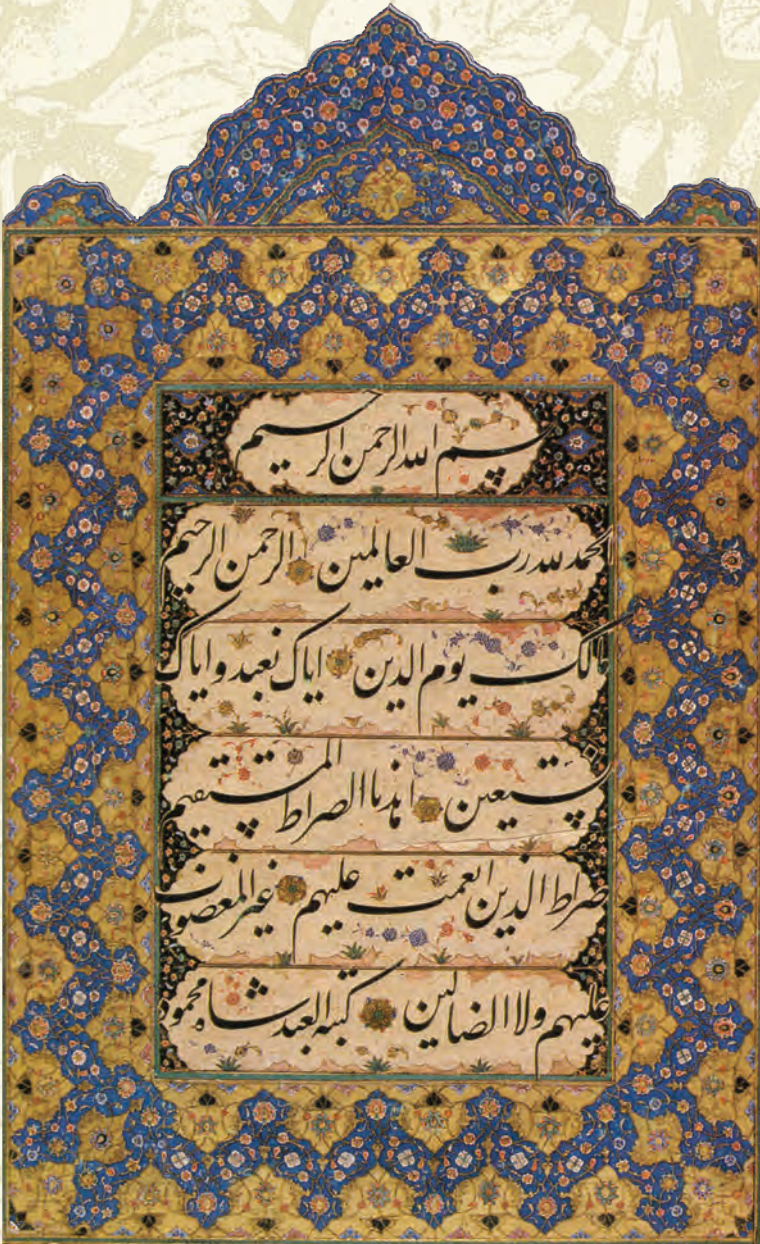 بسم الله الرحمن الرحیم
الحمد لله رب العالمین الرحمن الرحیم
مالک یوم الدین ایاک نعبد و ایاک
نستعین اهدنا الصراط المستقیم
صراط الذین انعمت علیهم غیر المغضوب
علیهم ولا الضالین کتبه العبد شاه محمود